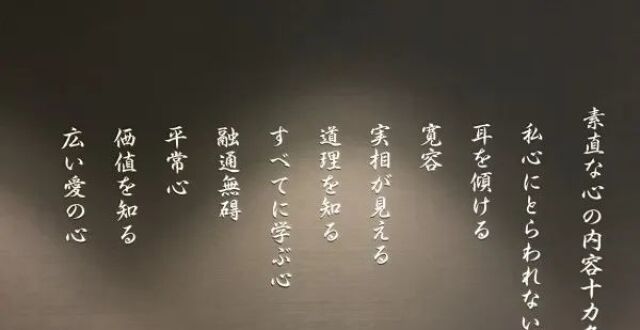 素直な心の内容十カ
私心にとらわれない
耳を傾ける
寛容
実相が見える
道理を知る
すべてに学ぶ心
融通無碍
平常心
価値を知る
広い愛の心